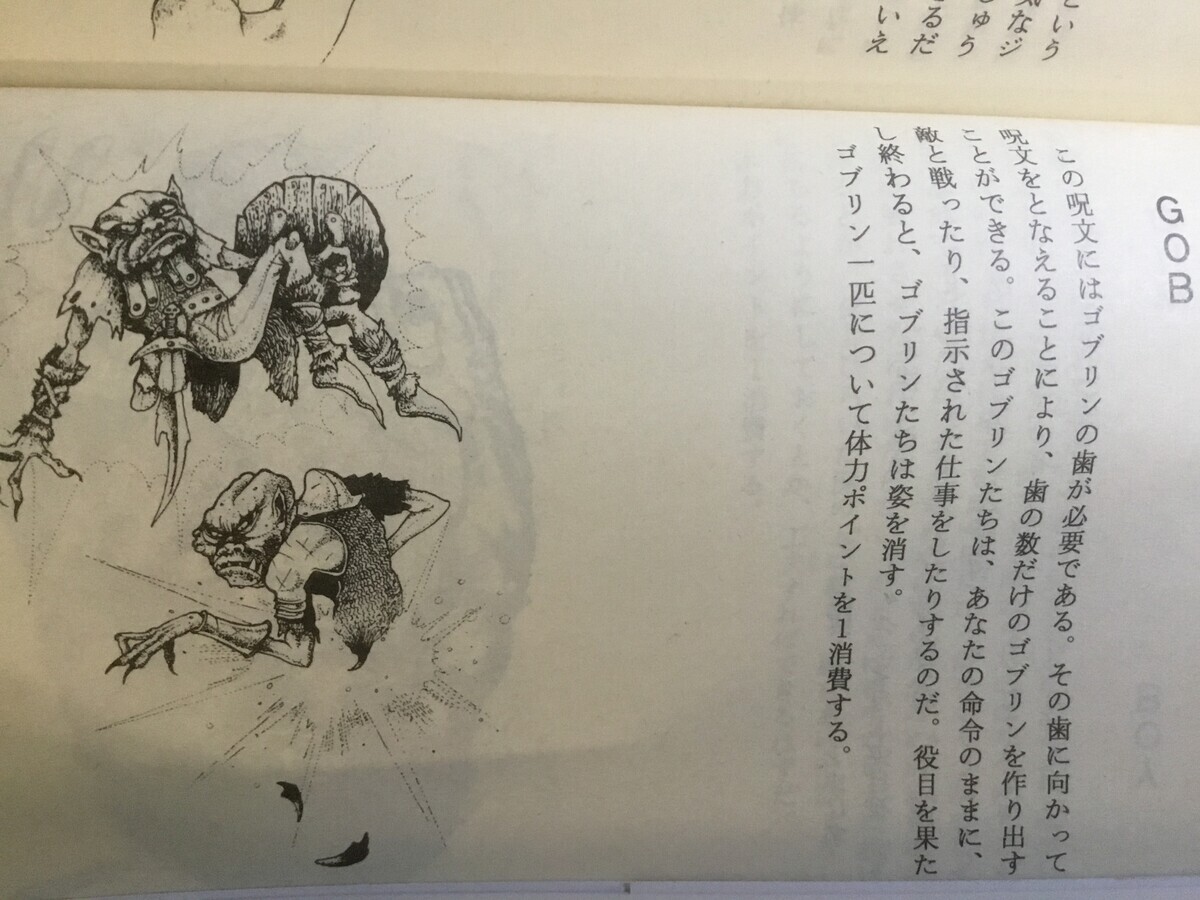 GOB
この呪文にはゴブリンの歯が必要である。その歯に向かって
呪文をとなえることにより、歯の数だけのゴブリンを作り出す
ことができる。このゴブリンたちは、あなたの命令のままに、
敵と戦ったり、指示された仕事をしたりするのだ。役目を果た
し終わると、ゴブリンたちは姿を消す。
ゴブリン一匹について体力ポイントを1消費する。
という
気なジ
しゅう
るだ
いえ